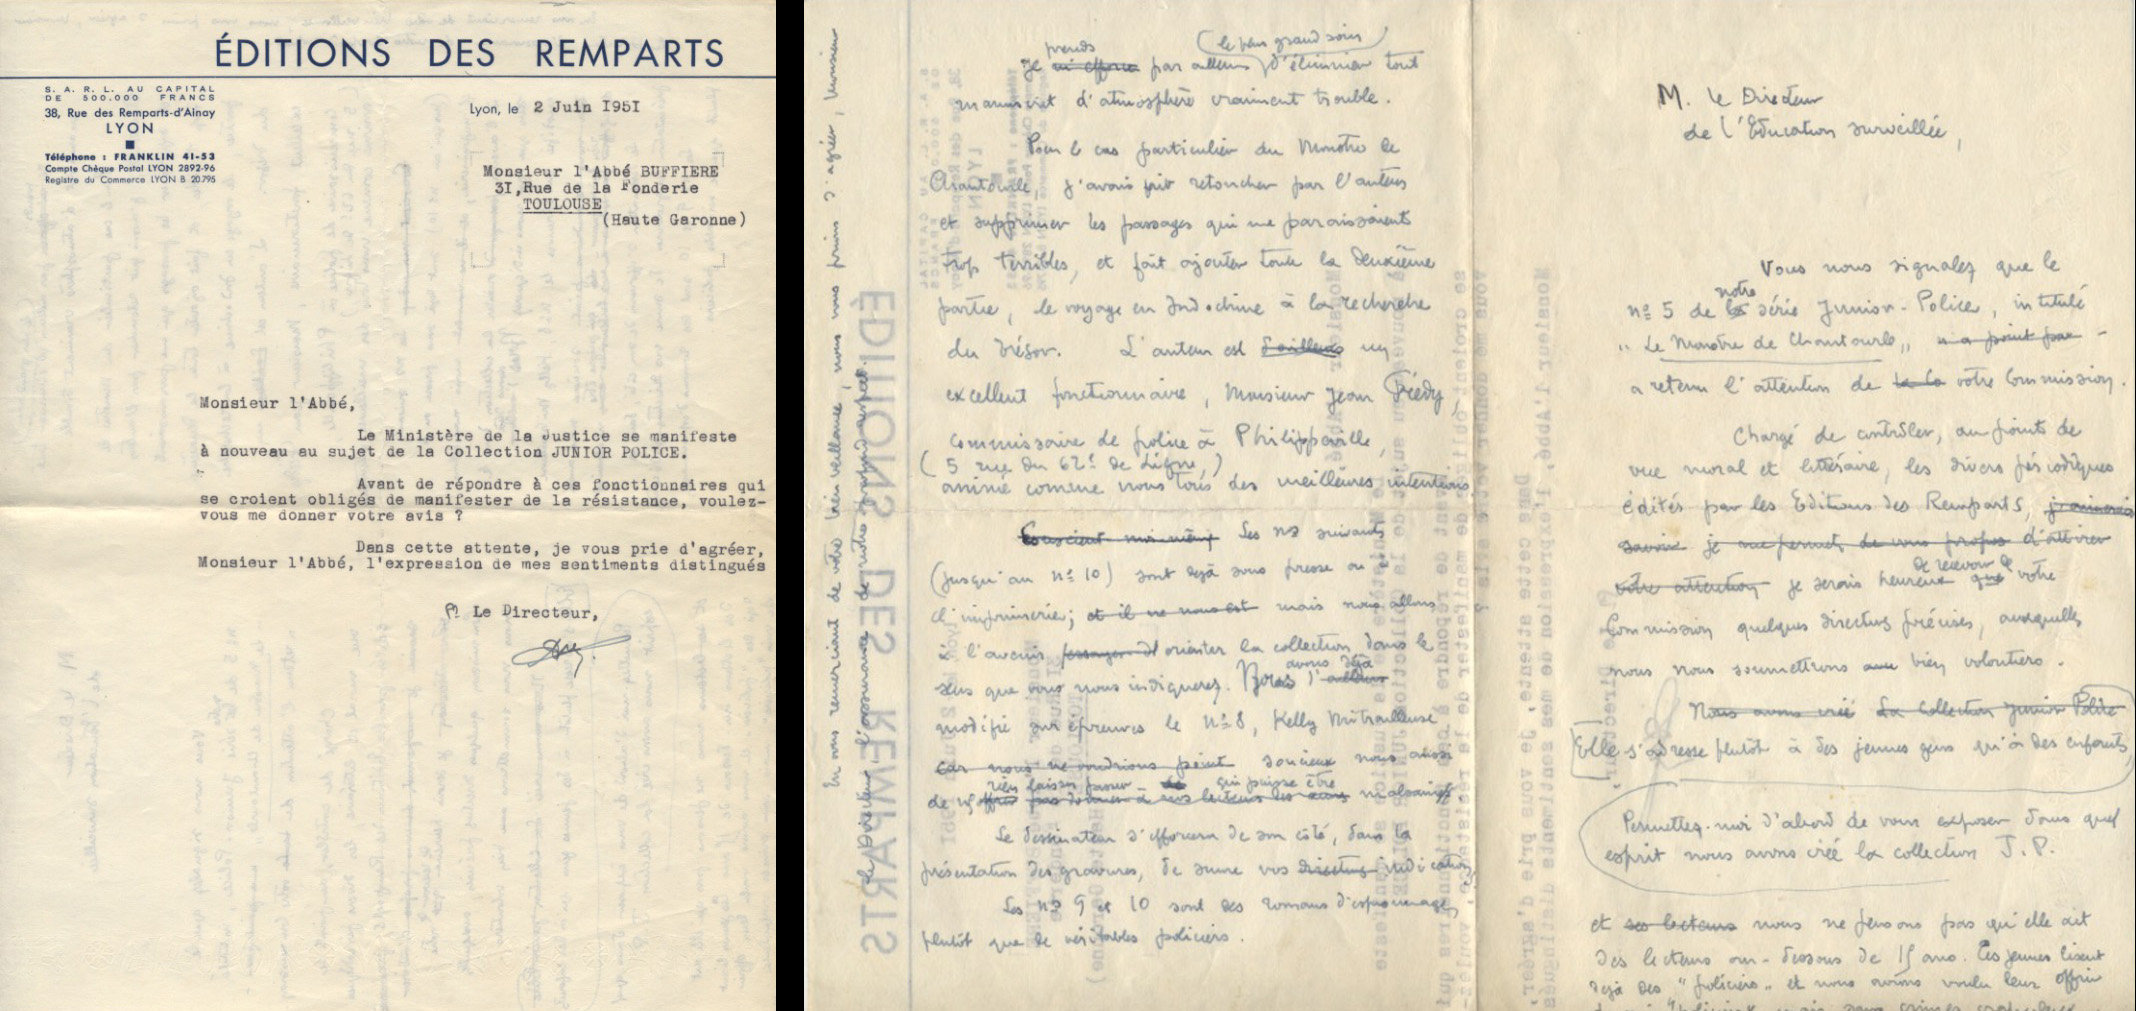 ÉDITIONS DES REMPARTS
S. A. R. L. AU CAPITAL
DE 500.000 FRANCS
38, Rue des Remparts-d'Ainay
LYON
Téléphone : FRANKLIN 41-53
Compte Chèque Postal LYON 2892-96
Registre du Commerce LYON B 20.795
Lyon, le 2 Juin I95I
Monsieur l'Abbé BUFFIERE
3I,Rue de la Fonderie
TOULOUSE
(Haute Garonne)
Monsieur l'Abbé,
Le Ministère de la Justice se manifeste
à nouveau au sujet de la Collection JUNIOR POLICE.
Avant de répondre à ces fonctionnaires qui
se croient obligés de manifester de la résistance, voulez-
vous me donner votre avis ?
Dans cette attente, je vous prie d'agréer,
Monsieur l'Abbé, l'expression de mes sentiments distingués
Le Directeur,
prends le plus grand soin
Je m'efforce par ailleurs d'éliminer tout
manuscrit d'atmosphère vraiment trouble.
Pour le cas particulier du Monstre de
Chantourle, j'avais fait retoucher par l'auteur
et supprimer les passages qui me paraissaient
trop terribles, et fait ajouter toute la deuxième
partie, le voyage en Indochine à la recherche
du trésor. L'auteur est d'ailleurs un
excellent fonctionnaire, Monsieur Jean
commissaire de police à Philippeville,
(5 rue du 62e de Ligne,)
animé comme nous tous des meilleures intentions.
Les nos suivants
(jusqu'au n° 10) sont déjà sous presse ou
à l'imprimerie; et il ne nous est mais nous allons
à l'avenir orienter la collection dans le
sens que vous nous indiquerez. Nous avons déjà d'ailleurs
modifié sur épreuves le N° 8, Kelly Mitrailleuse
car nous ne voudrions point soucieux nous aussi
rien laisser passer qui puisse être
de malsain.
Le dessinateur s'efforcera de son côté, dans la
présentation des gravures, de suivre vos directives indications
Les nos 9 et 10 sont des romans d'espionnage
plutôt que de véritables policiers.
En vous remerciant de votre bienveillance, nous vous prions d'agréer, Monsieur
le Directeur, l'assurance de notre profond respect.
M. le Directeur
de l'Education surveillée,
Vous nous signalez que le
notre
n° 5 de la série Junior-Police, intitulé
"Le Monstre de Chantourle" n'a point par -
a retenu l'attention de la Co votre Commission.
Chargé de contrôler, au point de
vue moral et littéraire, les divers périodiques
édités par les Editions des Remparts, j'aimerais
savoir je me permets de vous d'attirer
de recevoir de
votre attention je serais heureux que votre
Commission quelques directives précises, auxquelles
nous nous soumettrons bien volontiers.
Nous avons créé La Collection Junior Police
Elle s'adresse plutôt à des jeunes gens qu'à des enfants,
Permettez-moi d'abord de vous exposer dans quel
esprit nous avons créé la collection J. P.
et ses lecteurs nous ne pensons pas qu'elle ait
des lecteurs au-dessous de 15 ans. Ces jeunes lisent
déjà des "policiers" et nous avons voulu leur offrir